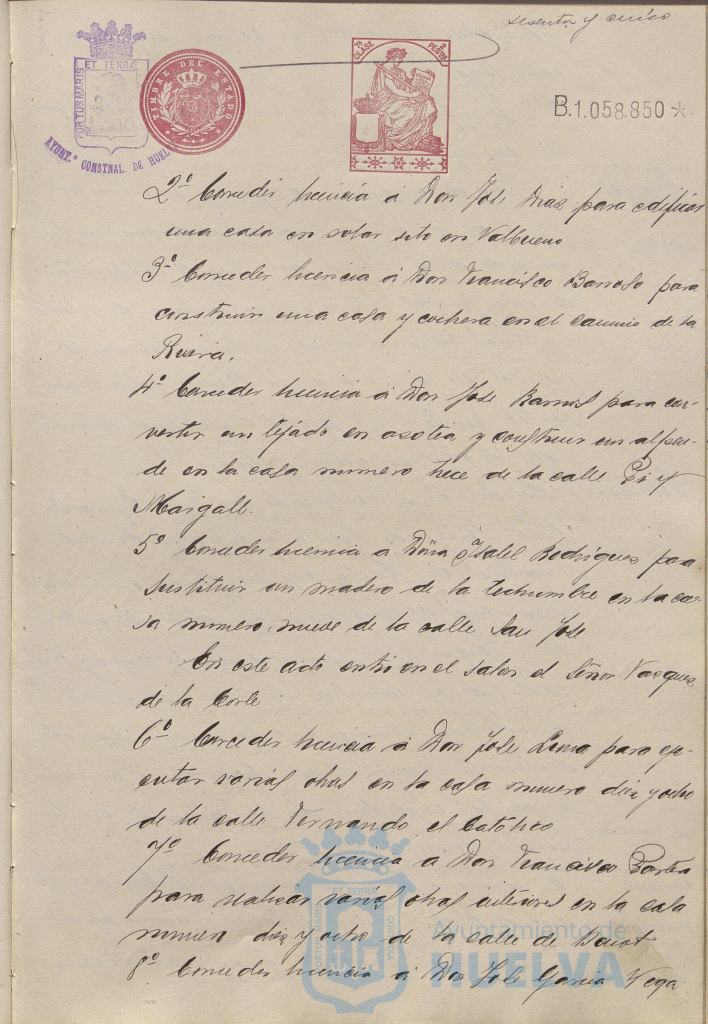 sesenta y cinco
ET TERRÆ
PORTUS MARIS
AYUNT.º CONSTNAL. DE HUEL
TIMBRE DEL ESTADO
7ª CLASE 2 PESTAS
B.1.058.850 *
2º Conceder licencia á Don José Diaz para edificar
una casa en solar sito en Valbueno
3º Conceder licencia á Don Francisco Barroso para
construir una casa y cochera en el camino de la
Rivera.
4º Conceder licencia á Don José Barros para con-
vertir un tejado en asotea y construir un alpen-
de en la casa numero trece de la calle Pi y
Margall.
5º Conceder licencia á Doña Isabel Rodrigues para
sustituir un madero de la techumbre en la ca-
sa numero nueve de la calle San José
En este acto entró en el salon el Señor Vasques
de la Corte
6º Conceder licencia á Don José Lema para eje-
cutar varias obras en la casa numero diez y ocho
de la calle Fernando el Católico
7º Conceder licencia á Don Francisco
para realizar varias obras interiores en la casa
numero diez y ocho de la calle de Daoiz
8º Conceder licencia á Don José Garcia Vega
Ayuntamiento de
HUELVA